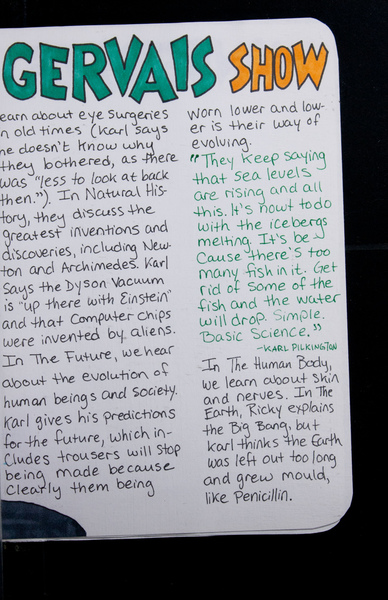 GERVAIS SHOW
earn about eye surgeries
n old times (Karl says
he doesn't know why
they bothered, as there
was "less to look at back
then."). In Natural His-
tory, they discuss the
greatest inventions and
discoveries, including New-
ton and Archimedes. Karl
says the Dyson Vacuum
is "up there with Einstein"
and that computer chips
were invented by aliens.
In The Future, we hear
about the evolution of
human beings and society.
Karl gives his predictions
for the future, which in-
cludes trousers will stop
being made because
clearly them being
worn lower and low-
er is their way of
evolving.
"They keep saying
that sea levels
are rising and all
this. It's nowt to do
with the icebergs
melting. It's be-
cause there's too
many fish in it. Get
rid of some of the
fish and the water
will drop. Simple.
Basic Science."
-KARL PILKINGTON
In The Human Body,
we learn about skin
and nerves. In The
Earth, Ricky explains
the Big Bang, but
Karl thinks the Earth
was left out too long
and grew mould,
like Penicillin.